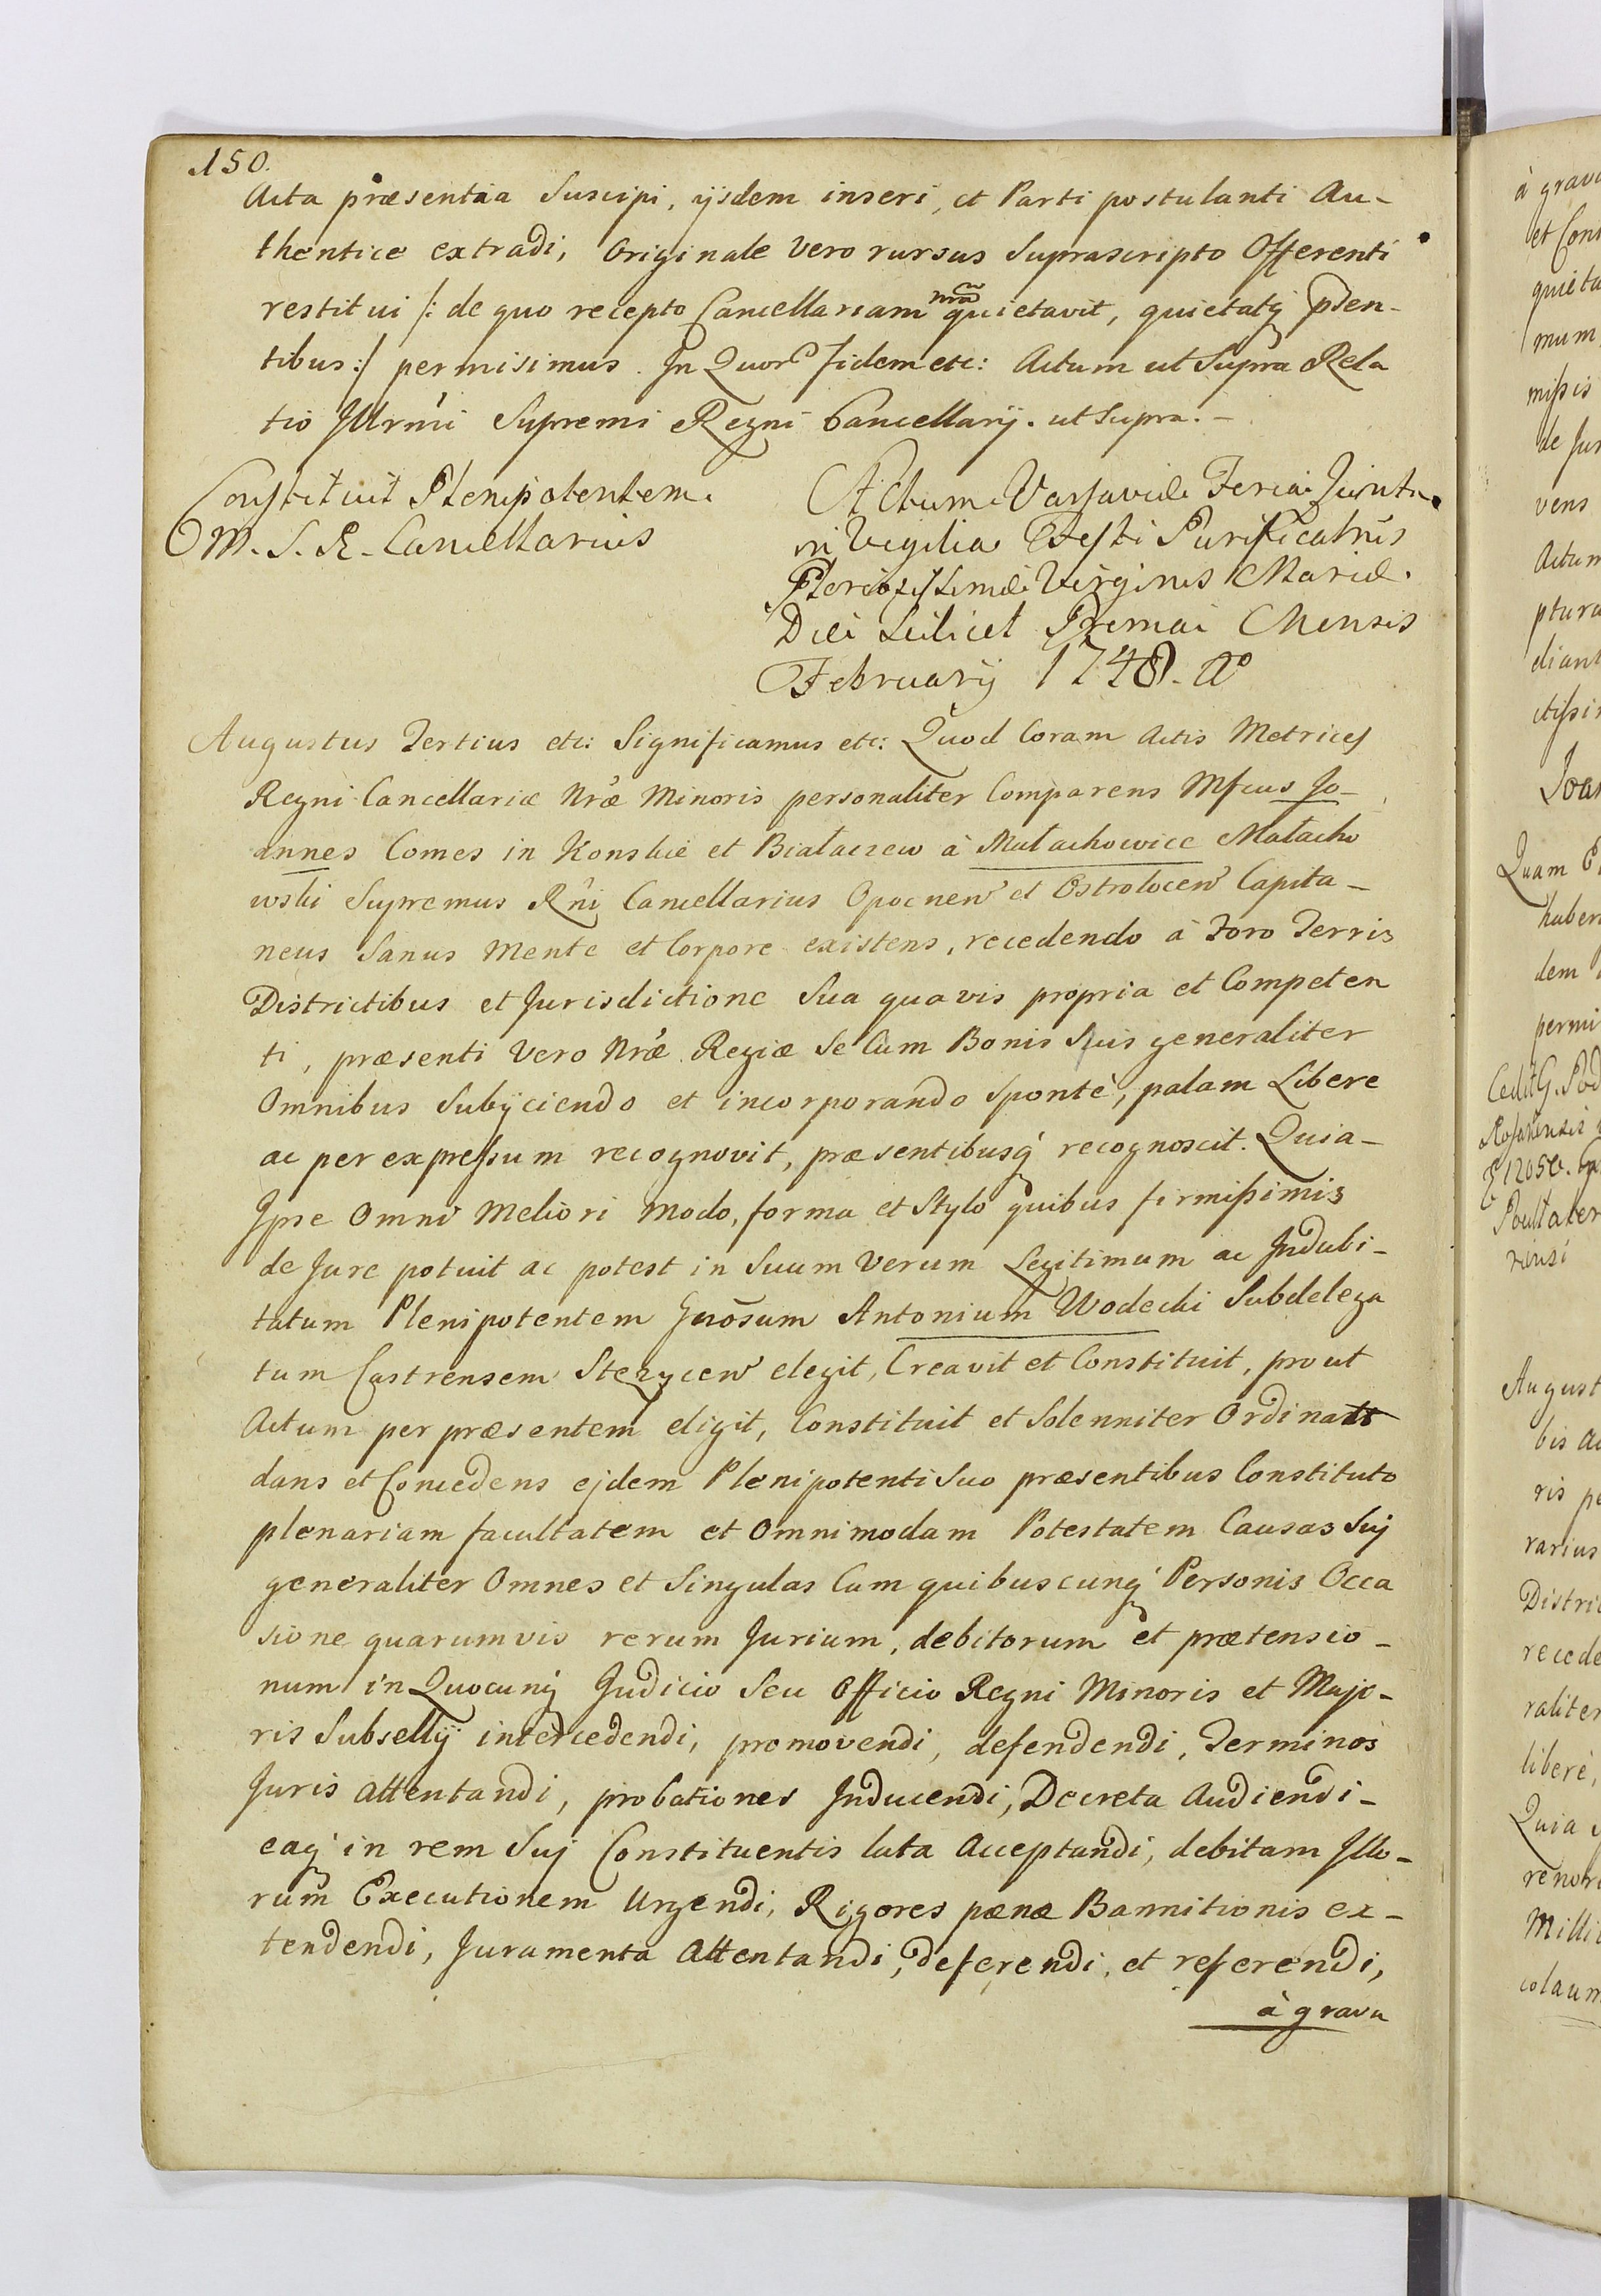 150.
Acta præsentia Suscipi, ijsdem inseri, et Parti postulanti Au-
thentice extradi, Originale vero rursus Suprascripto Offerenti
restitui /: de quo recepto Cancellariam nrãm quietavit, quietatq̃ pñen-
tibus :/ permisimus. In Quor̃ fidem etc: Actum ut Supra Rela
tio Illrm̃i Supremi Regni Cancellarij. ut Supra.-
Constituit Plenipotentem.
M. S. R. Cancellarius
Actum Varsaviæ Feria Quinta
in Vigilia Festi Purificatñis
Gloriosissimæ Virginis Mariæ.
Diei Scilicet Prima Mensis
February 1748. Aº
Augustus Tertius etc: Significamus etc: Quod Coram Actis Metrices
Regni Cancellariæ Nræ Minoris personaliter Comparens Mfcus Jo-
annes Comes in Konskie et Białaczew à Małachowice Małacho
wski Supremus Rñi Cancellarius Opocnen et Ostrolocen Capita-
neus Sanus Mente et Corpore existens, recedendo à Foro Terris
Districtibus et Jurisdictione Sua quavis propria et Competen
ti, præsenti vero Nræ Regiæ Se Cum Bonis Suis generaliter
Omnibus Subijciendo et incorporando Sponte, palam Libere
ac per expressum recognovit, præsentibusq̃ recognoscit. Quia-
Ipse Omni Meliori Modo, forma et Stylo quibus firmissimis
de Jure potuit ac potest in Suum Verum Legitimum ac Indubi-
tatum Plenipotentem Gnõsum Antonium Wodecki Subdelega
tum Castrensem Stezycen elegit, Creavit et Constituit, prout
Actum per præsentem eligit, Constituit et Solenniter Ordinat
dans et Concedens ejdem Plenipotenti Suo præsentibus Constituto
plenariam facultatem et Omnimodam Potestatem Causas Suj
generaliter Omnes et Singulas Cum quibuscunq̃ Personis Occa
sione quarumvis rerum Jurium, debitorum et prætensio-
num in Quocunq̃ Judicio Seu Officio Regni Minoris et Majo-
ris Subsellij intercedendi, promovendi, defendendi, Terminos
Juris attentandi, probationes Inducendi, Decreta Audiendi-
eaq̃ in rem Suj Constituentis lata Acceptandi, debitam Illo-
rum Executionem Urgendi, Rigores pænæ Bannitionis ex-
tendendi, Juramenta Attentandi, deferendi, et referendi,
à grava